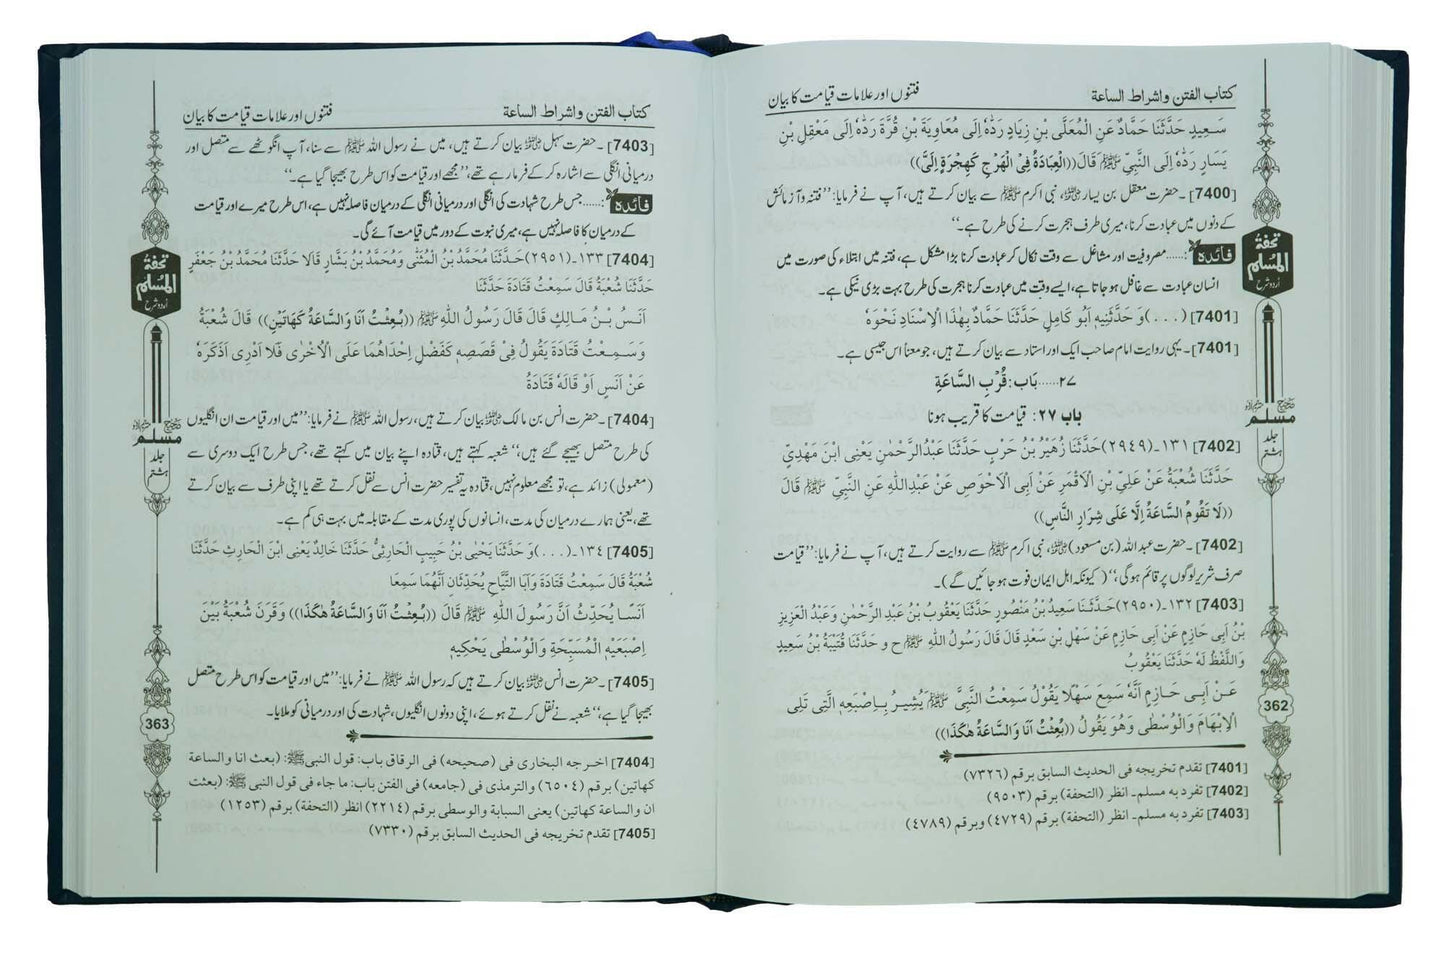 کتاب الفتن واشراط الساعة
فتنوں اور علامات قیامت کا بیان
سَعِیدٍ حَدَّثَنَا حَمَّادٌ عَنِ الْمُعَلَّى بْنِ زِیَادٍ رَدَّهُ إِلَى مُعَاوِیَةَ بْنِ قُرَّةَ رَدَّهُ إِلَى مَعْقِلِ بْنِ
یَسَارٍ رَدَّهُ إِلَى النَّبِیِّ ﷺ قَالَ ((الْعِبَادَةُ فِیْ الْهَرْجِ كَهِجْرَةٍ إِلَیَّ))
[7400]۔ حضرت معقل بن یسار ؓ، نبی اکرم ﷺ سے بیان کرتے ہیں، آپ نے فرمایا: ”فتنہ و آزمائش
کے دنوں میں عبادت کرنا، میری طرف ہجرت کرنے کی طرح ہے۔“
فائدہ:......مصروفیت اور مشاغل سے وقت نکال کر عبادت کرنا بڑا مشکل ہے، فتنہ میں ابتلاء کی صورت میں
انسان عبادت سے غافل ہو جاتا ہے، ایسے وقت میں عبادت کرنا ہجرت کی طرح بہت بڑی نیکی ہے۔
[7401] (...) وَ حَدَّثَنِیهِ أَبُو كَامِلٍ حَدَّثَنَا حَمَّادٌ بِهٰذَا الْاِسْنَادِ نَحْوَهُ
[7401]۔ یہی روایت امام صاحب ایک اور استاد سے بیان کرتے ہیں، جو معناً اس جیسی ہے۔
۲۷......بَاب: قُرْبِ السَّاعَةِ
باب ۲۷: قیامت کا قریب ہونا
[7402] ۱۳۱۔(۲۹۴۹) حَدَّثَنَا زُهَیْرُ بْنُ حَرْبٍ حَدَّثَنَا عَبْدُالرَّحْمٰنِ یَعْنِی ابْنَ مَهْدِیٍّ
حَدَّثَنَا شُعْبَةُ عَنْ عَلِیِّ بْنِ الْأَقْمَرِ عَنْ أَبِی الْأَحْوَصِ عَنْ عَبْدِاللّٰهِ عَنِ النَّبِیِّ ﷺ قَالَ
((لَا تَقُومُ السَّاعَةُ إِلَّا عَلَى شِرَارِ النَّاسِ))
[7402]۔ حضرت عبداللہ (بن مسعود) ؓ، نبی اکرم ﷺ سے روایت کرتے ہیں، آپ نے فرمایا: ”قیامت
صرف شریر لوگوں پر قائم ہوگی،“ (کیونکہ اہل ایمان فوت ہو جائیں گے)۔
[7403] ۱۳۲۔(۲۹۵۰) حَدَّثَنَا سَعِیدُ بْنُ مَنْصُورٍ حَدَّثَنَا یَعْقُوبُ بْنُ عَبْدِ الرَّحْمٰنِ وَعَبْدُ الْعَزِیزِ
بْنُ أَبِی حَازِمٍ عَنْ أَبِی حَازِمٍ عَنْ سَهْلِ بْنِ سَعْدٍ قَالَ قَالَ رَسُولُ اللّٰهِ ﷺ ح و حَدَّثَنَا قُتَیْبَةُ بْنُ سَعِیدٍ
وَاللَّفْظُ لَهُ حَدَّثَنَا یَعْقُوبُ
عَنْ أَبِی حَازِمٍ أَنَّهُ سَمِعَ سَهْلًا یَقُولُ سَمِعْتُ النَّبِیَّ ﷺ یُشِیرُ بِإِصْبَعِهِ الَّتِی تَلِی
الْإِبْهَامَ وَالْوُسْطَى وَهُوَ یَقُولُ ((بُعِثْتُ أَنَا وَالسَّاعَةُ هٰكَذَا))
[7401] تقدم تخریجه فی الحدیث السابق برقم (۷۳۲۶)
[7402] تفرد به مسلم۔ انظر (التحفة) برقم (۹۵۰۳)
[7403] تفرد به مسلم۔ انظر (التحفة) برقم (۴۷۲۹) وبرقم (۴۷۸۹)
تحفة
المسلم
اردو شرح
صحیح
مسلم
جلد
ہشتم
362
کتاب الفتن واشراط الساعة
فتنوں اور علامات قیامت کا بیان
[7403]۔ حضرت سہل ؓ بیان کرتے ہیں، میں نے رسول اللہ ﷺ سے سنا، آپ انگوٹھے سے متصل اور
درمیانی انگلی سے اشارہ کر کے فرما رہے تھے، ”مجھے اور قیامت کو اس طرح بھیجا گیا ہے۔“
فائدہ:......جس طرح شہادت کی انگلی اور درمیانی انگلی کے درمیان فاصلہ نہیں ہے، اس طرح میرے اور قیامت
کے درمیان کا فاصلہ نہیں ہے، میری نبوت کے دور میں قیامت آئے گی۔
[7404] ۱۳۳۔(۲۹۵۱) حَدَّثَنَا مُحَمَّدُ بْنُ الْمُثَنَّى وَمُحَمَّدُ بْنُ بَشَّارٍ قَالَا حَدَّثَنَا مُحَمَّدُ بْنُ جَعْفَرٍ
حَدَّثَنَا شُعْبَةُ قَالَ سَمِعْتُ قَتَادَةَ حَدَّثَنَا
أَنَسُ بْنُ مَالِكٍ قَالَ قَالَ رَسُولُ اللّٰهِ ﷺ ((بُعِثْتُ أَنَا وَالسَّاعَةُ كَهَاتَیْنِ)) قَالَ شُعْبَةُ
وَسَمِعْتُ قَتَادَةَ یَقُولُ فِیْ قَصَصِهِ كَفَضْلِ إِحْدَاهُمَا عَلَى الْأُخْرٰى فَلَا أَدْرِی أَذَكَرَهُ
عَنْ أَنَسٍ أَوْ قَالَهُ قَتَادَةُ
[7404]۔ حضرت انس بن مالک ؓ بیان کرتے ہیں، رسول اللہ ﷺ نے فرمایا: ”میں اور قیامت ان انگلیوں
کی طرح متصل بھیجے گئے ہیں،“ شعبہ کہتے ہیں، قتادہ اپنے بیان میں کہتے تھے، جس طرح ایک دوسری سے
(معمولی) زائد ہے، تو مجھے معلوم نہیں، قتادہ یہ تفسیر حضرت انس سے نقل کرتے تھے یا اپنی طرف سے بیان کرتے
تھے، یعنی ہمارے درمیان کی مدت، انسانوں کی پوری مدت کے مقابلہ میں بہت ہی کم ہے۔
[7405] ۱۳۴۔(...) وَ حَدَّثَنَا یَحْیَى بْنُ حَبِیبٍ الْحَارِثِیُّ حَدَّثَنَا خَالِدٌ یَعْنِی ابْنَ الْحَارِثِ حَدَّثَنَا
شُعْبَةُ قَالَ سَمِعْتُ قَتَادَةَ وَأَبَا التَّیَّاحِ یُحَدِّثَانِ أَنَّهُمَا سَمِعَا
أَنَسًا یُحَدِّثُ أَنَّ رَسُولَ اللّٰهِ ﷺ قَالَ ((بُعِثْتُ أَنَا وَالسَّاعَةُ هٰكَذَا)) وَقَرَنَ شُعْبَةُ بَیْنَ
إِصْبَعَیْهِ الْمُسَبِّحَةِ وَالْوُسْطٰى یَحْكِیهِ
[7405]۔ حضرت انس ؓ بیان کرتے ہیں کہ رسول اللہ ﷺ نے فرمایا: ”میں اور قیامت کو اس طرح متصل
بھیجا گیا ہے،“ شعبہ نے نقل کرتے ہوئے، اپنی دونوں انگلیوں، شہادت کی اور درمیانی کو ملایا۔
[7404] اخرجه البخاری فی (صحیحه) فی الرقاق باب: قول النبی ﷺ: (بعث انا والساعة
کهاتین) برقم (۶۵۰۴) والترمذی فی (جامعه) فی الفتن باب: ما جاء فی قول النبی ﷺ: (بعثت
ان والساعة کهاتین) یعنی السبابة والوسطی برقم (۲۲۱۴) انظر (التحفة) برقم (۱۲۵۳)
[7405] تقدم تخریجه فی الحدیث السابق برقم (۷۳۳۰)
تحفة
المسلم
اردو شرح
صحیح
مسلم
جلد
ہشتم
363